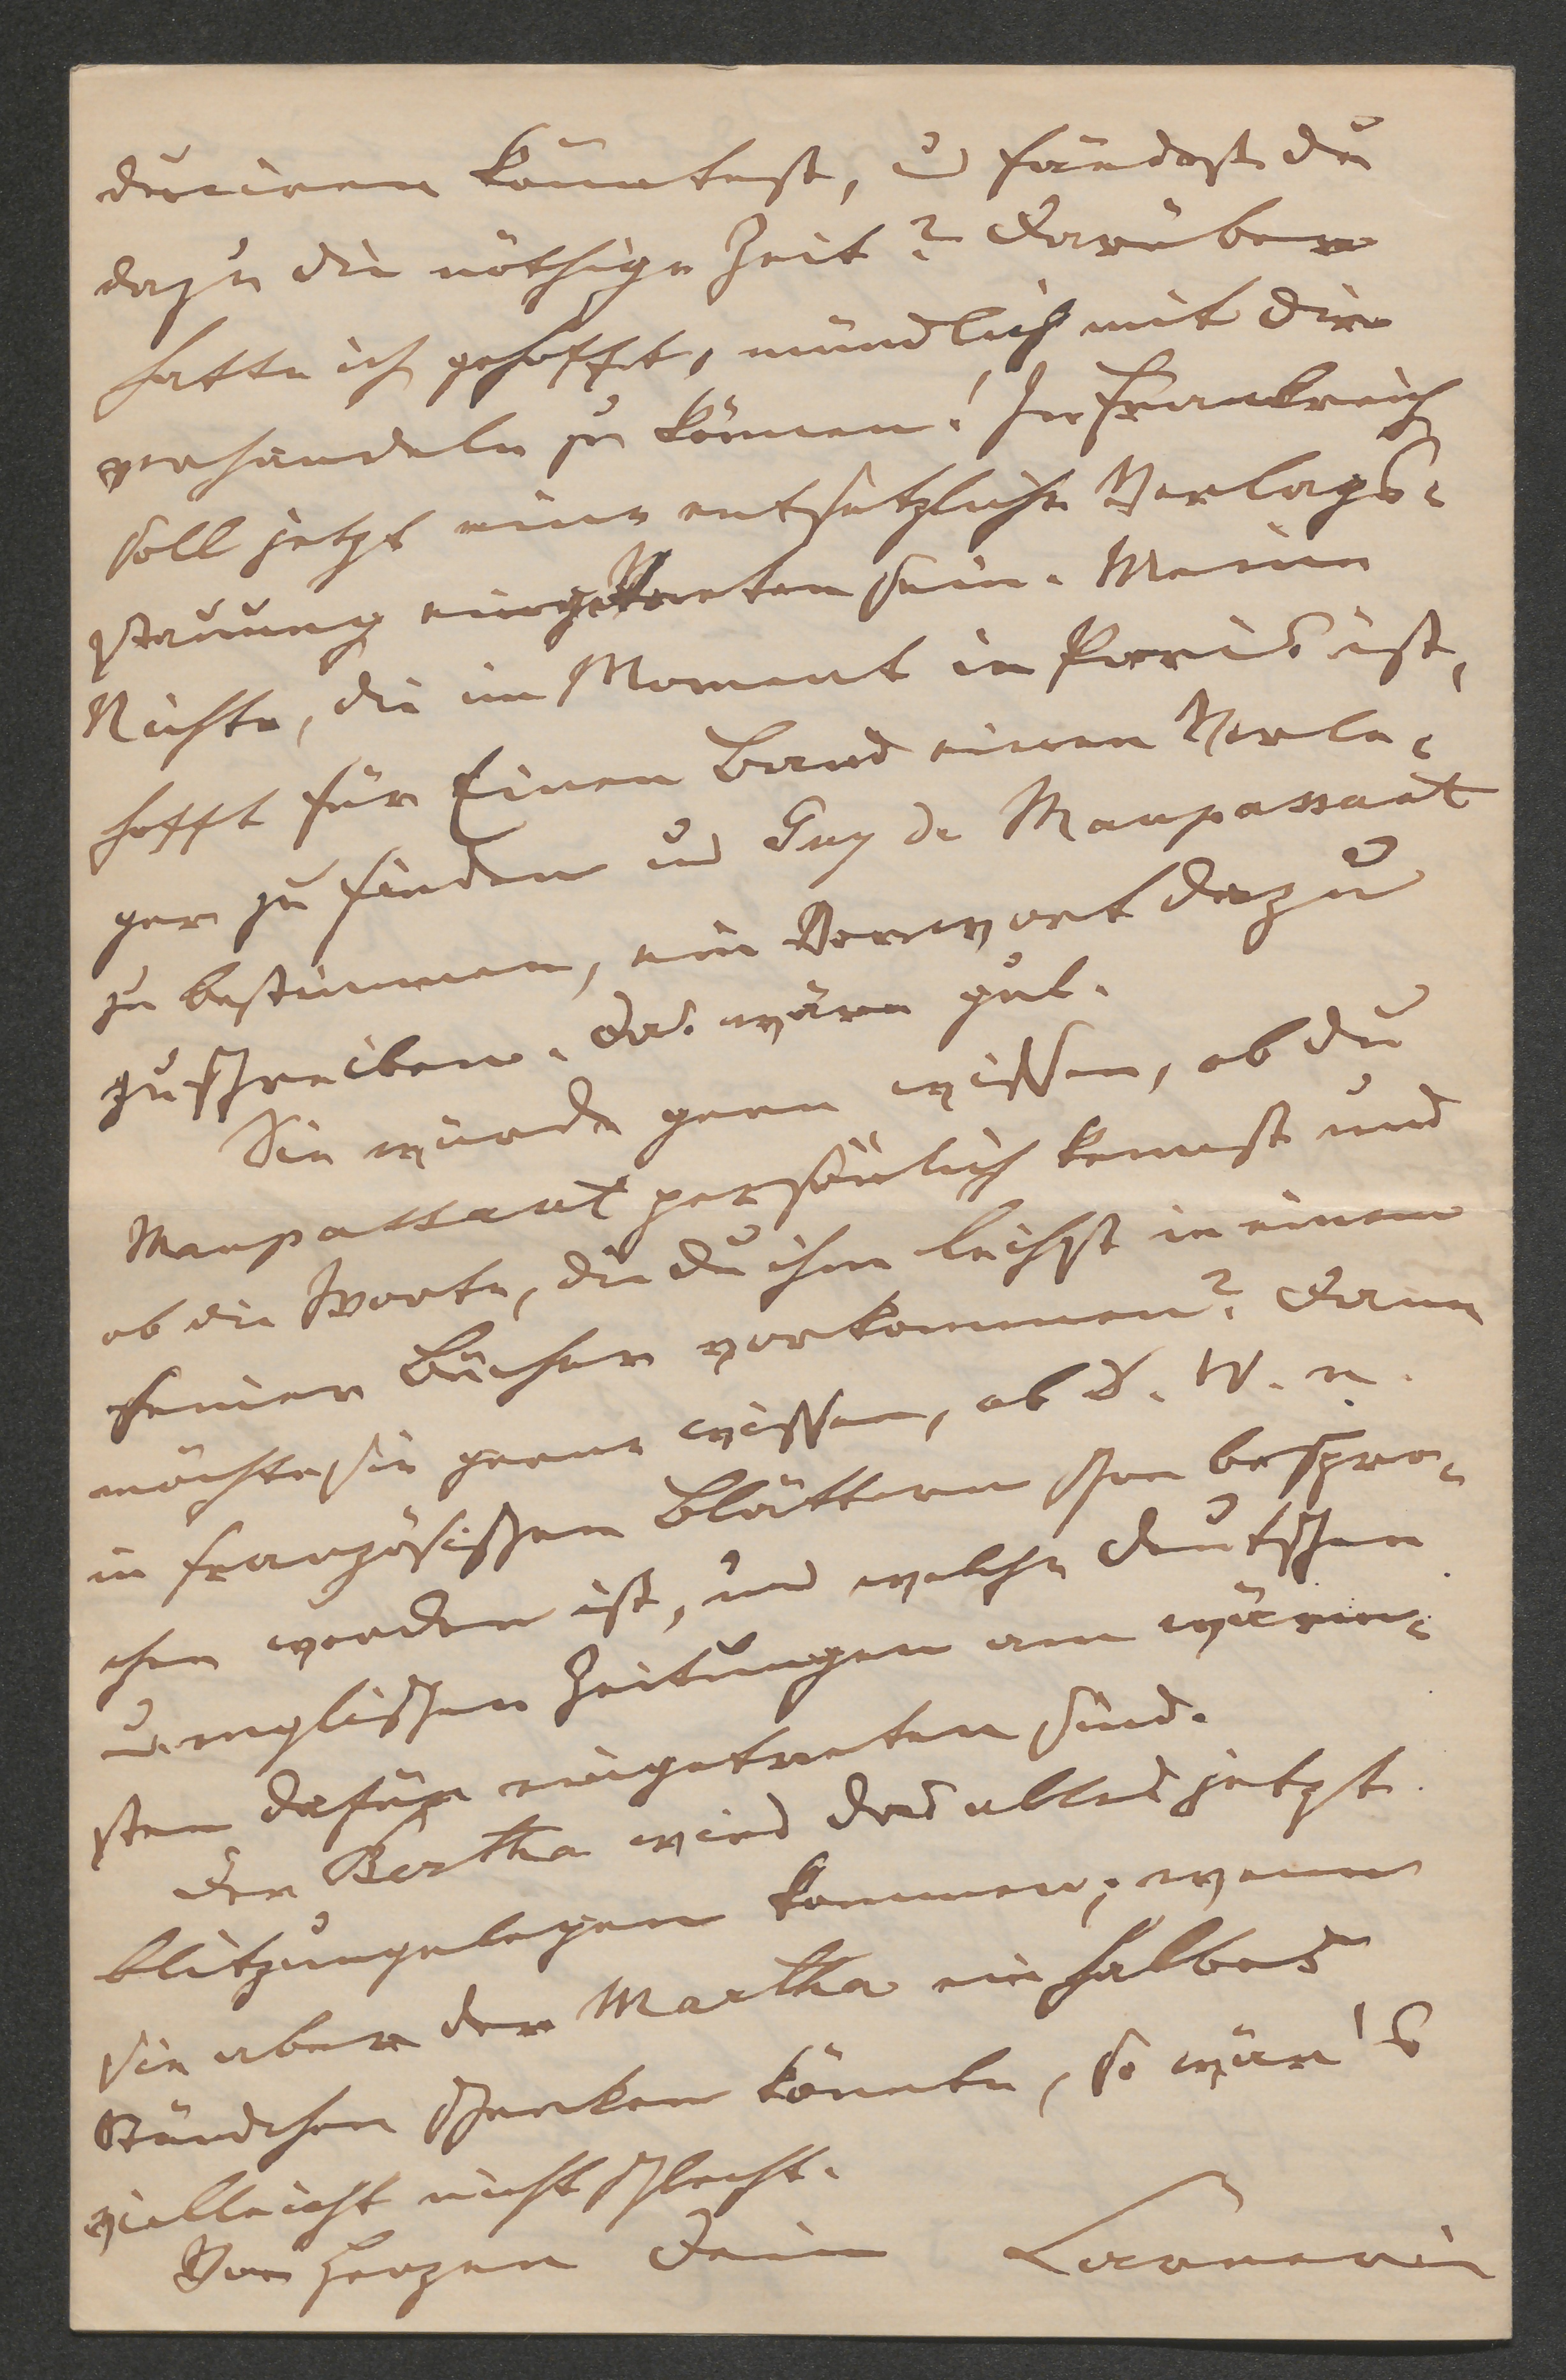 duciren könntest, u fändest du
dazu die nöthige Zeit? Darüber
hatte ich gehofft, mündlich mit dir
verhandeln zu können! In Frankreich
soll jetzt eine entsetzliche Verlags-
stauung eingetreten sein. Meine
Nichte, die im Moment in Paris ist,
hofft für Einen Band einen Verle-
ger zu finden und Guy de Maupassant
zu bestimmen, ein Vorwort dazu
zu schreiben. Das wäre gut.
Sie würde gern wissen, ob du
Maupassant persönlich kennst und
ob die Worte, die du ihm leihst in einem
seiner Bücher vorkommen? Dann
möchte sie gerne wissen, ob D. W. n.
in französischen Blättern schon bespro-
chen worden ist, und welche deutschen
u. englischen Zeitungen am wärm-
sten dafür eingetreten sind.
Der Bertha wird das alles jetzt
blitzungelegen kommen; wenn
sie aber der Martha ein halbes
Stündchen schenken könnte, so wär's
vielleicht nicht schlecht.
Von Herzen dein Carneri